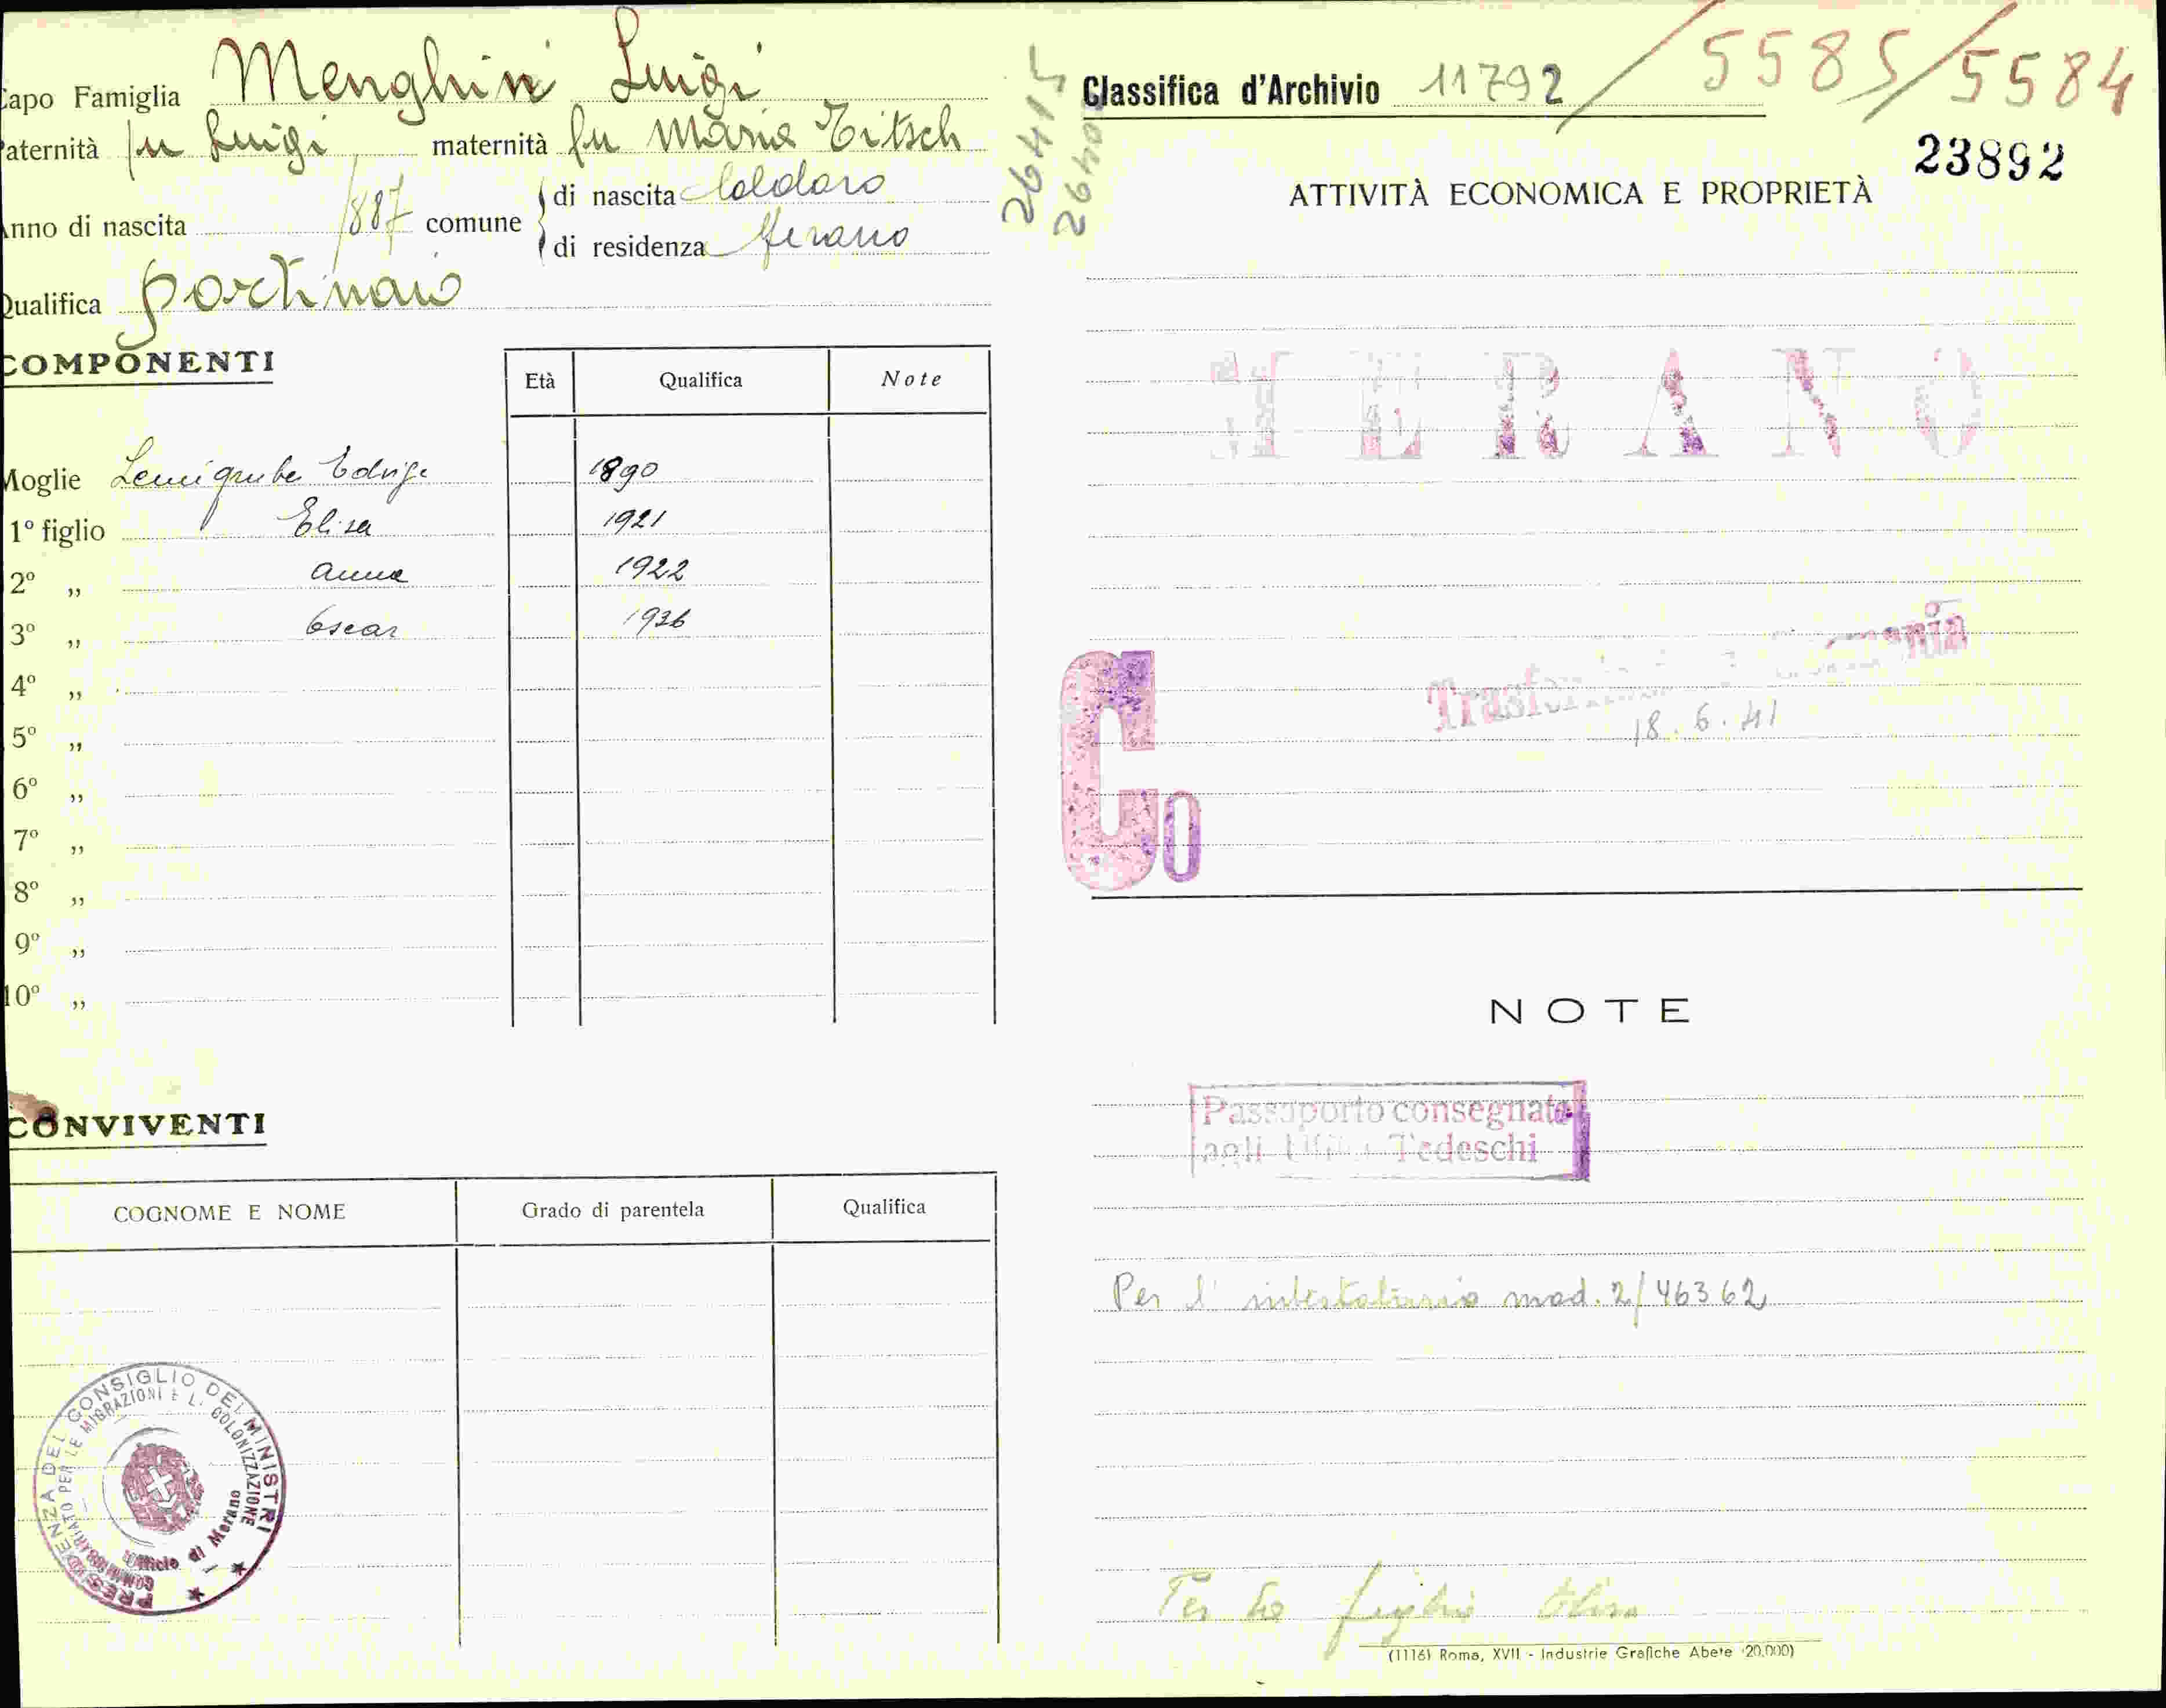 Capo Famiglia Menghin Luigi
Paternità fu Luigi maternità fu Maria Titsch
Anno di nascita 1887 comune di nascita Caldaro
di residenza Merano
Qualifica portinaio
COMPONENTI
Età Qualifica Note
Moglie Edvige 1890
1º figlio Elisa 1921
2º ,, Anna 1922
3º ,, Oscar 1926
4º ,,
5º ,,
6º ,,
7º ,,
8º ,,
9º ,,
10º ,,
CONVIVENTI
COGNOME E NOME Grado di parentela Qualifica
PRESIDENZA DEL CONSIGLIO DEI MINISTRI
COMMISSARIATO PER LE MIGRAZIONI E L. COLONIZZAZIONE
Ufficio di Merano
26415
Classifica d'Archivio 11792 / 5585/5584
23892
ATTIVITÀ ECONOMICA E PROPRIETÀ
MERANO
18.6.41
Co
NOTE
Passaporto consegnato
agli Uffici Tedeschi
Per l'intestatario mod. 2/46362
Per la figlia Elisa
(1116) Roma, XVII - Industrie Grafiche Abete (20.000)